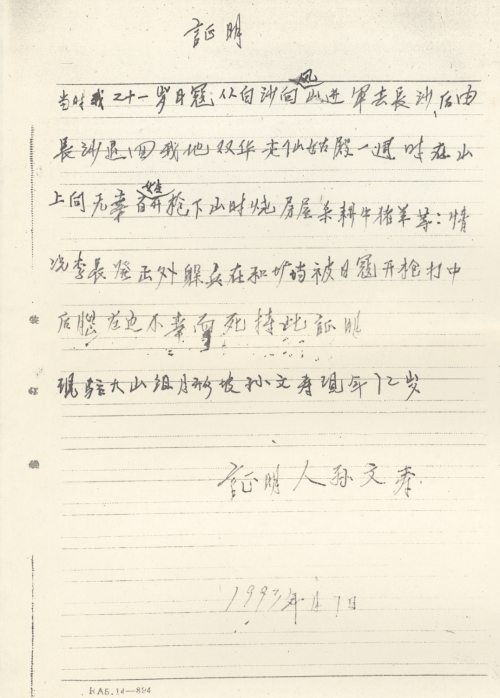 証明
当时我二十一岁日寇从白沙向凤山进军去長沙,后由
長沙退回我地双华走仙姑殿一迥时在山
上向无辜百姓开枪下山时烧房屋杀耕牛猪羊等:情
况李長 出外躲兵在和圹塆被日冠开枪打中
后腰 边不幸而死持此証明
現駐大山组月形坡孙文寿現年72岁
証明人孙文寿.
199 年 月7日
装
訂
線
HAS.14—894